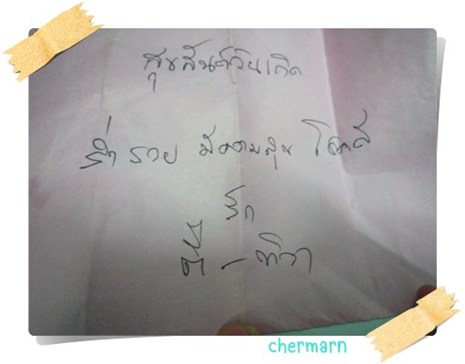 สุขสันต์วันเกิด
ร่ำรวย มีความสุข โชคดี
รัก
ทิวา
chermarn